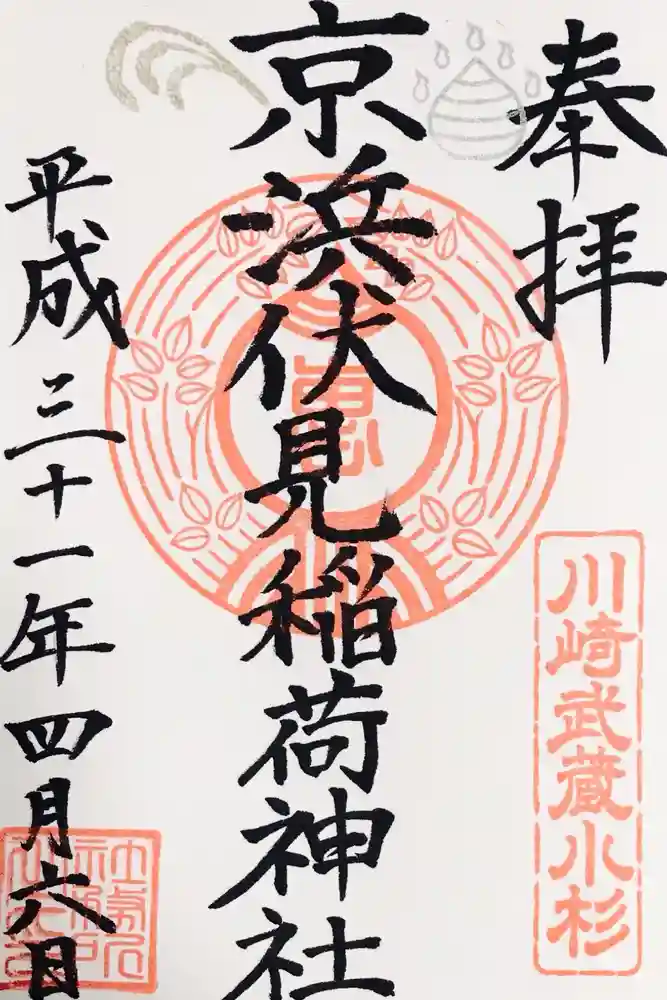 奉拝
川崎武蔵小杉
京浜伏見稲荷神社
恵
平成三十一年四月六日
社務所